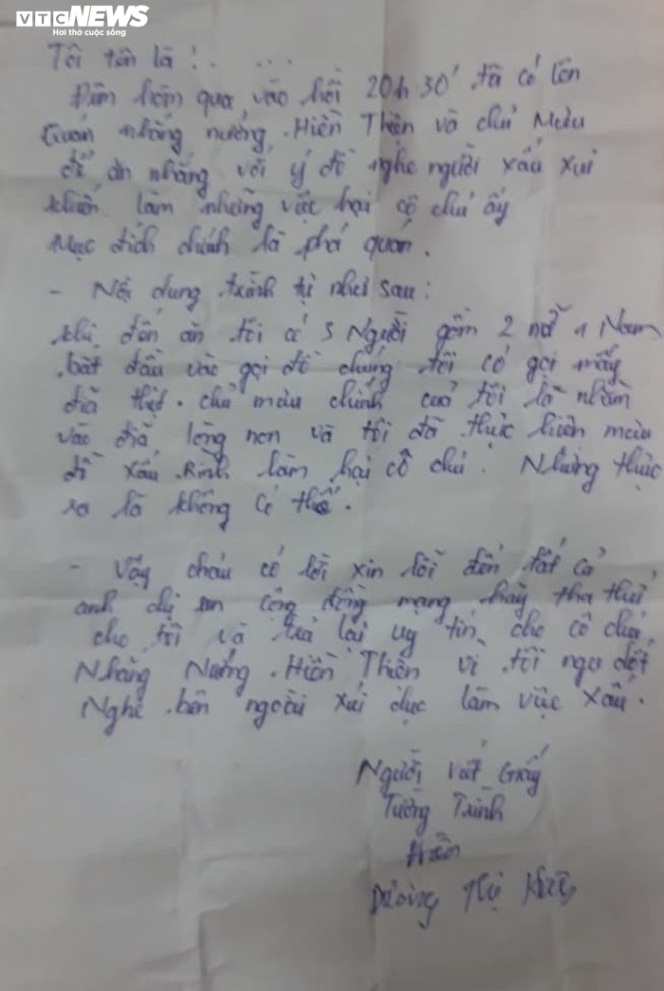 VTC NEWS
Hơi thở cuộc sống
Tôi tên là :. . . .
Đêm hôm qua vào hồi 20h 30' tôi có lên
Quán nhắng nướng Hiền Thiện và chủ Mưu
để ăn nhắng với ý đồ nghe người xấu xui
khiến làm những việc hại cô chú ấy
Mục đích chính là phá quán.
- Nội dung trình tự như sau:
khi đến ăn tôi có 3 Người gồm 2 nữ 1 Nam
bắt đầu vào gọi đồ chúng tôi có gọi mấy
đĩa thịt. chủ mưu chính của tôi là nhằm
vào đĩa lòng non và tôi đã thực hiện mưu
đồ xấu làm hại cô chú. Nhưng thực
ra là không có thế.
- Vậy cháu có lời xin lỗi đến tất cả
anh chị em cộng đồng mạng hãy tha thứ
cho tôi và trả lại uy tín cho cô chú
Nhắng Nướng Hiền Thiện vì tôi ngu dốt
Nghe bên ngoài xúi dục làm việc xấu.
Người viết Giấy
Tường Trình
Dương Thị